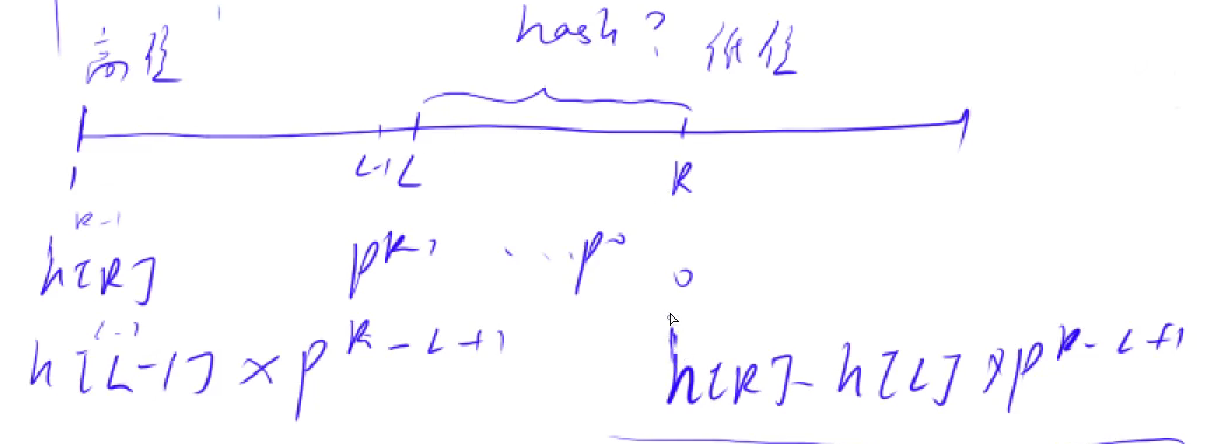 hash?
高位 低位
1 L-1 L R
R-1
h[R] p^{R-1} ... p^0 0
L-1
h[L-1] × p^{R-L+1} h[R] - h[L] × p^{R-L+1}